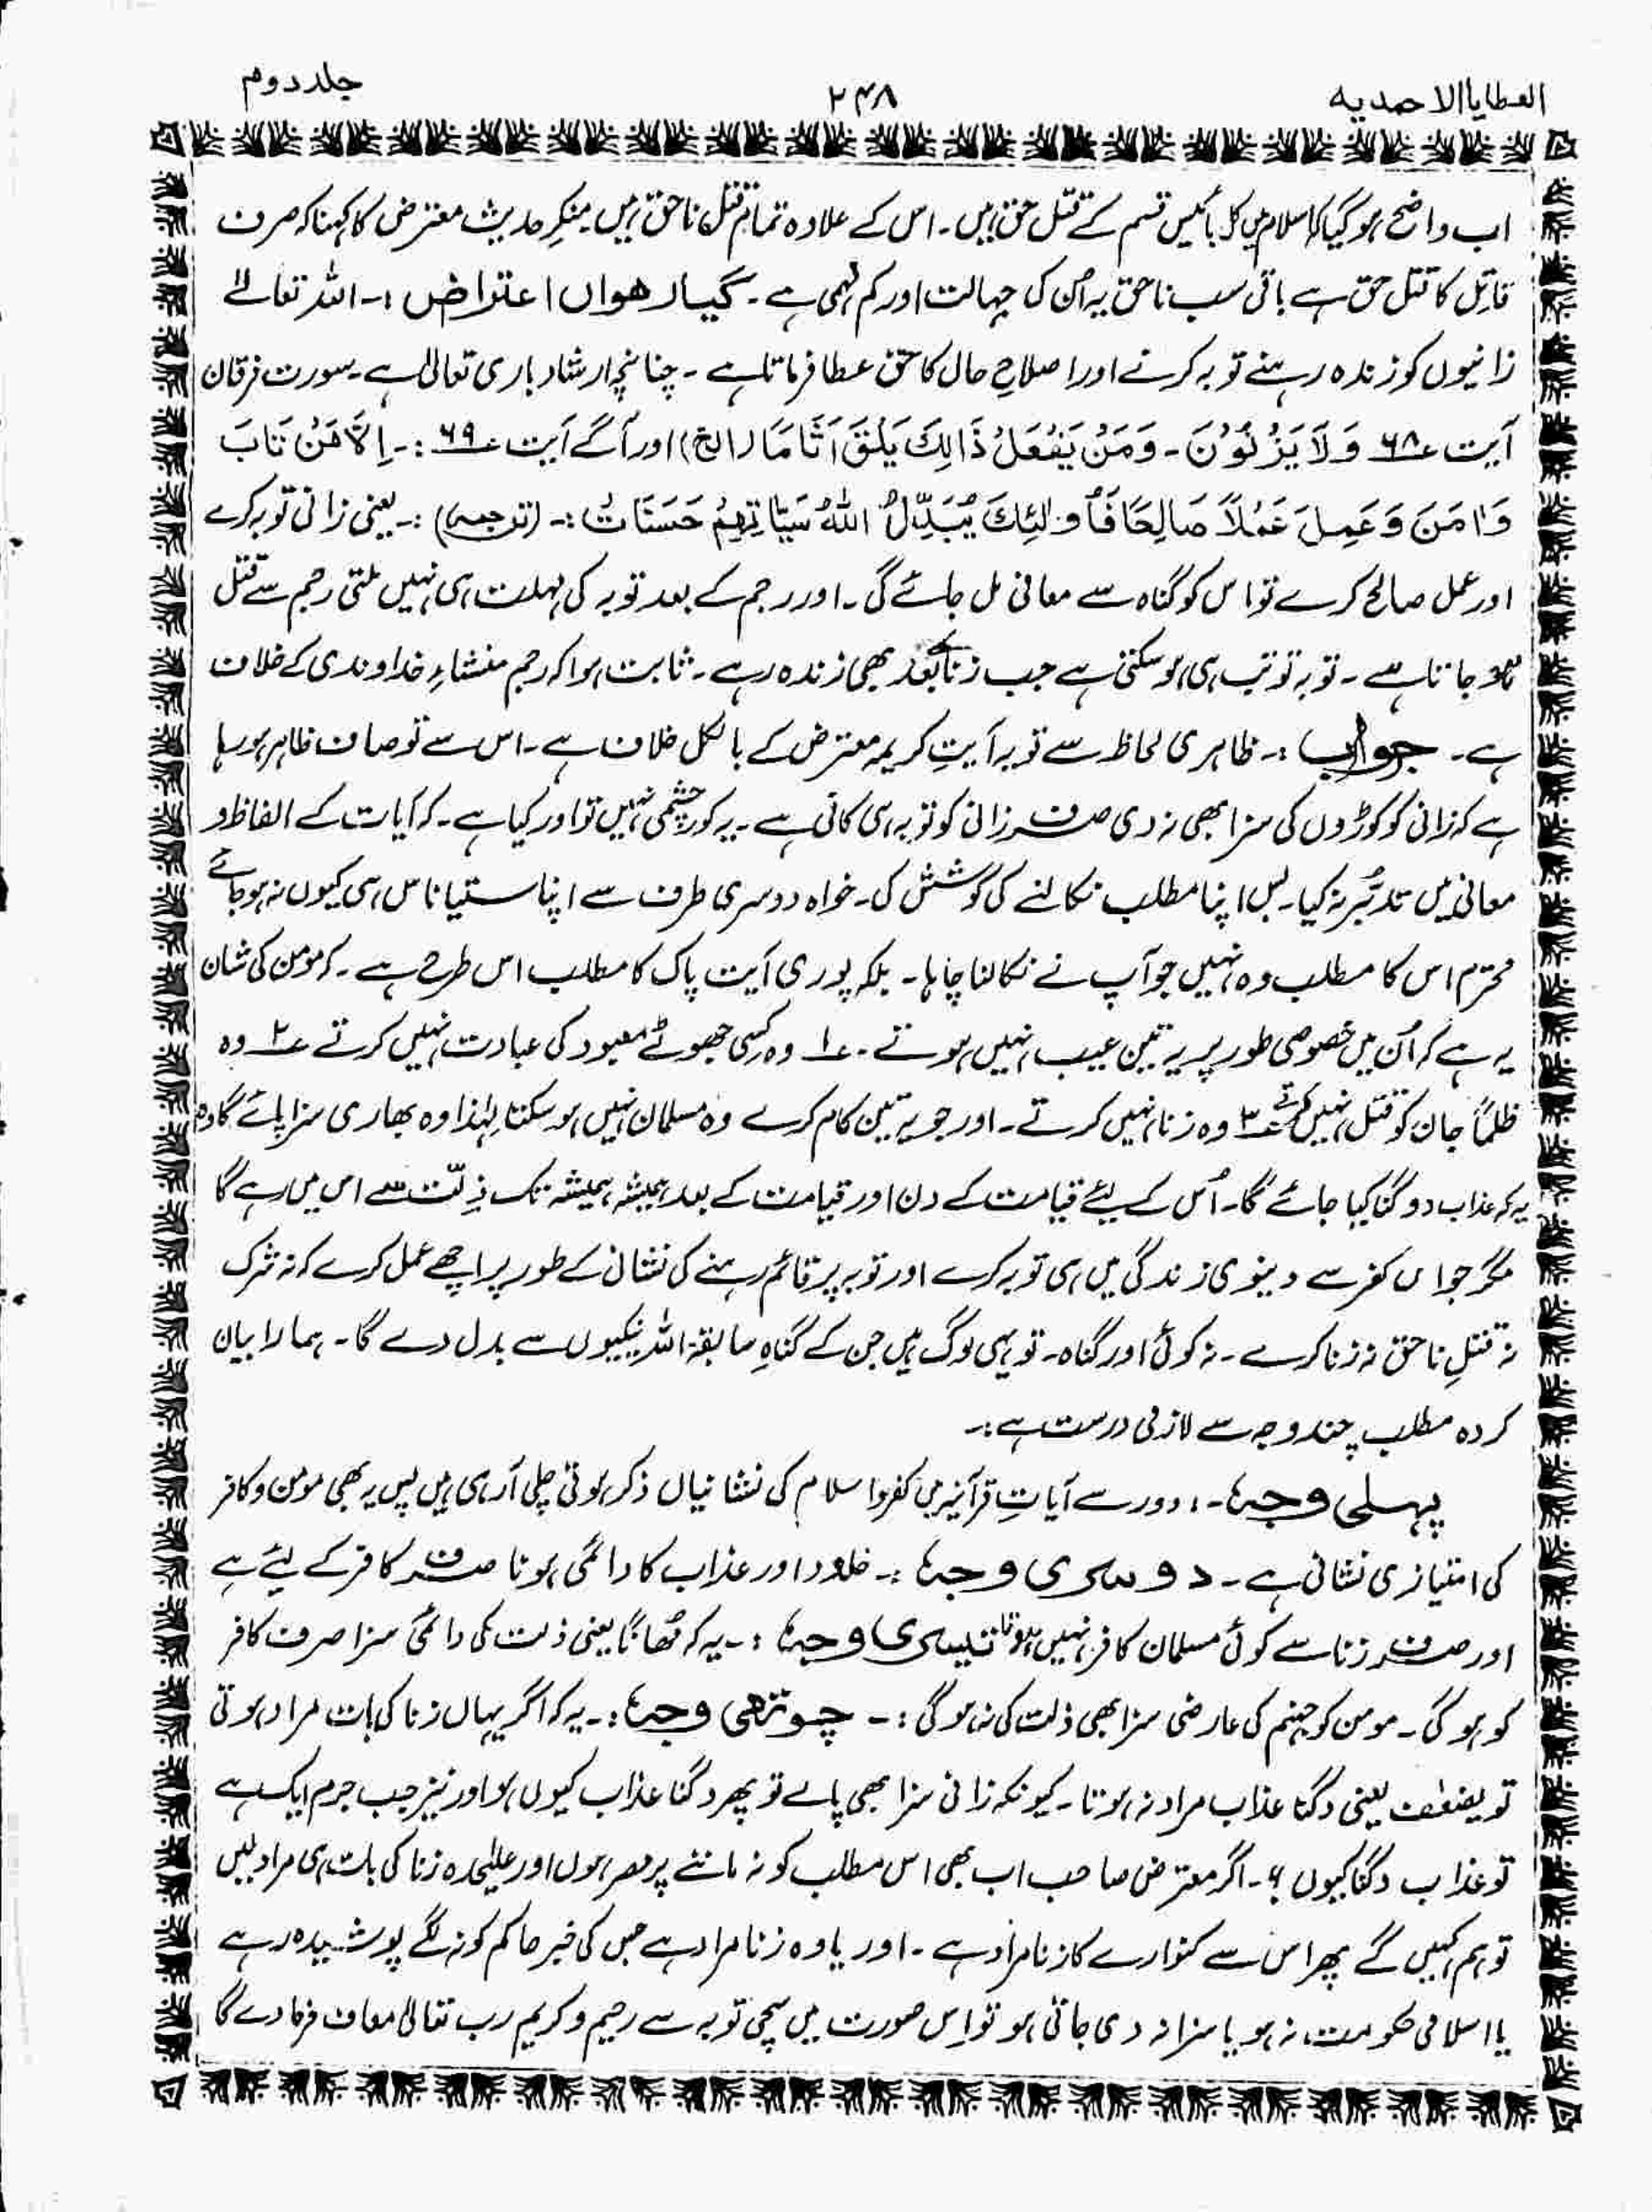 العطایا الاحمدیه ۲۴۸ جلد دوم
اب واضح ہو گیا کہ اسلام میں کل بائیس قسم کے قتل حق ہیں۔ اس کے علاوہ تمام قتل ناحق ہیں منکرِ حدیث معترض کا کہنا کہ صرف
قاتل کا قتل حق ہے باقی سب ناحق یہ اُن کی جہالت اور کم فہمی ہے۔ گیارھواں اعتراض :۔ اللہ تعالےٰ
زانیوں کو زندہ رہنے توبہ کرنے اور اصلاحِ حال کا حق عطا فرماتا ہے۔ چنانچہ ارشاد باری تعالیٰ ہے۔ سورت فرقان
آیت ۶۸ وَلَا یَزْنُوْنَ۔ وَمَنْ یَفْعَلْ ذَالِكَ یَلْقَ اَثَامًا (الخ) اور آگے آیت ۶۹ :۔ اِلَّا مَنْ تَابَ
وَاٰمَنَ وَعَمِلَ عَمَلًا صَالِحًا فَاُولٰئِكَ یُبَدِّلُ اللّٰهُ سَیِّاٰتِهِمْ حَسَنَاتٌ :۔ (ترجمہ) :۔ یعنی زانی توبہ کرے
اور عمل صالح کرے تو اس کو گناہ سے معافی مل جائے گی۔ اور رجم کے بعد توبہ کی مہلت ہی نہیں ملتی رجم سے قتل
ہو جاتا ہے۔ توبہ تو تب ہی ہو سکتی ہے جب زنا کے بعد بھی زندہ رہے۔ ثابت ہوا کہ رجم منشاءِ خداوندی کے خلاف
ہے۔ جواب :۔ ظاہری لحاظ سے تو یہ آیتِ کریمہ معترض کے بالکل خلاف ہے۔ اس سے تو صاف ظاہر ہو رہا
ہے کہ زانی کو کوڑوں کی سزا بھی نہ دی صرف زانی کو توبہ ہی کافی ہے۔ یہ کورچشمی نہیں تو اور کیا ہے۔ کہ آیات کے الفاظ و
معانی میں تدبُّر نہ کیا۔ بس اپنا مطلب نکالنے کی کوشش کی۔ خواہ دوسری طرف سے اپنا ستیاناس ہی کیوں نہ ہو جائے
محترم اس کا مطلب وہ نہیں جو آپ نے نکالنا چاہا۔ بلکہ پوری آیت پاک کا مطلب اس طرح ہے۔ کہ مومن کی شان
یہ ہے کہ اُن میں خصوصی طور پر یہ تین عیب نہیں ہوتے۔ ۱ وہ کسی جھوٹے معبود کی عبادت نہیں کرتے ۲ وہ
ظلماً جان کو قتل نہیں کرتے ۳ وہ زنا نہیں کرتے۔ اور جو یہ تین کام کرے وہ مسلمان نہیں ہو سکتا لہٰذا وہ بھاری سزا پائے گا وہ
یہ کہ عذاب دوگنا کیا جائے گا۔ اُس کے لیئے قیامت کے دن اور قیامت کے بعد ہمیشہ ہمیشہ تک ذِلّت سے اس میں رہے گا
مگر جو اس کفر سے دینوی زندگی میں ہی توبہ کرے اور توبہ پر قائم رہنے کی نشانی کے طور پر اچھے عمل کرے کہ نہ شرک
نہ قتلِ ناحق نہ زنا کرے۔ نہ کوئی اور گناہ۔ تو یہی لوگ ہیں جن کے گناہِ سابقہ اللہ نیکیوں سے بدل دے گا۔ ہمارا بیان
کردہ مطلب چند وجہ سے لازمی درست ہے :۔
پہلی وجہ :۔ دور سے آیاتِ قرآنیہ میں کفر و اسلام کی نشانیاں ذکر ہوتی چلی آ رہی ہیں پس یہ بھی مومن و کافر
کی امتیازی نشانی ہے۔ دوسری وجہ :۔ خلود اور عذاب کا دائمی ہونا صرف کافر کے لیئے ہے
اور صرف زنا سے کوئی مسلمان کافر نہیں ہوتا تیسری وجہ :۔ یہ کہ مُھَانًا یعنی ذلت کی دائمی سزا صرف کافر
کو ہو گی۔ مومن کو جہنم کی عارضی سزا بھی ذلت کی نہ ہو گی :۔ چوتھی وجہ :۔ یہ کہ اگر یہاں زنا کی بات مراد ہوتی
تو یضعف یعنی دگنا عذاب مراد نہ ہوتا۔ کیونکہ زانی سزا بھی پالے تو پھر دگنا عذاب کیوں ہو اور نیز جب جرم ایک ہے
تو عذاب دگنا کیوں ؟۔ اگر معترض صاحب اب بھی اس مطلب کو نہ ماننے پر مصر ہوں اور علیحدہ زنا کی بات ہی مراد لیں
تو ہم کہیں گے پھر اس سے کنوارے کا زنا مراد ہے۔ اور یا وہ زنا مراد ہے جس کی خبر حاکم کو نہ لگے پوشیدہ رہے
یا اسلامی حکومت نہ ہو یا سزا نہ دی جاتی ہو تو اِس صورت میں سچی توبہ سے رحیم و کریم رب تعالیٰ معاف فرما دے گا